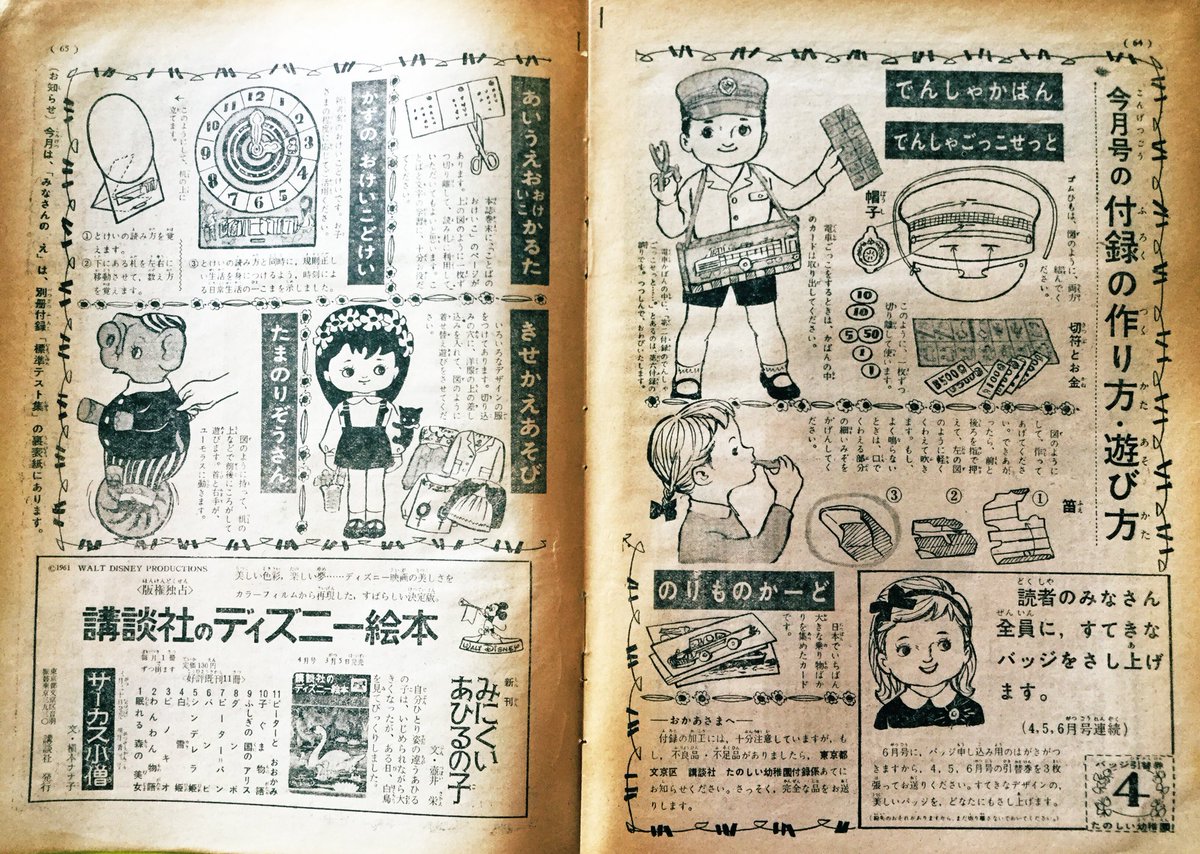 (64)
今月号の付録の作り方・遊び方
でんしゃかばん
でんしゃごっこせっと
帽子
ゴムひもは、図のように、両方
結んでく
ださい。
電車ごっこをするときは、かばんの中
のカードは取り出してください。
切符とお金
このように、一枚ずつ
切り離して使います。
10
10
5
50
1
1
¥500
笛
①
②
③
図のように
して、作って
あげてくださ
い。できあが
ったら、前と
後ろを指で押
えて、左の図
のように軽く
くわえて吹き
ます。もし、
よく鳴らない
ときは、口で
くわえる部分
の細いみぞを
かげんしてく
ださい。
のりものかーど
日本でいちばん
大きな乗り物ばか
りを集めたカード
です。
―おかあさまへ―
付録の加工には、十分注意していますが、も
し、不良品・不足品がありましたら、東京都
文京区 講談社 たのしい幼稚園付録係あてに
お知らせください。さっそく、完全な品をお送
りします。
読者のみなさん
全員に，すてきな
バッジをさし上げ
ます。
(4,5,6月号連続)
6月号に、バッジ申し込み用のはがきがつ
きますから、4，5，6月号の引替券を3枚
張ってお送りください。すてきなデザインの、
美しいバッジを、どなたにもさし上げます。
バッジ引替券
4
たのしい幼稚園
(65)
あいうえおおけいこかるた
本誌巻末に、「ことばの
おけいこ」のページが
あります。一枚ずつ
切り離し、読み札
上の図のように
かずのおけいこどけい
12
1
2
3
4
5
6
7
8
9
10
11
←このようにして、机の上に
立てます。
①とけいの読み方を覚
えます。
②下にある札を左右に
移動させて、数え方
を覚えます。
③とけいの読み方と同時に、規則正し
い生活を身につけるよう、時刻によ
る日常生活の一こまを示しました。
きせかえあそび
いろいろなデザインの服
をつけてあります。切り込
みの穴に、洋服の上の差し
込みを入れて、図のように
着せ替え遊びをさせてくだ
さい。
たまのりぞうさん
図のように持って、机の
上などで前後にころがして
遊びます。首と右手が、
ユーモラスに動きます。
(お知らせ) 今月は、「みなさんの え」は、別冊付録「標準テスト集」の裏表紙にあります。
©1961 WALT DISNEY PRODUCTIONS
〈版権独占〉
美しい色彩，楽しい夢……ディズニー映画の美しさを
カラーフィルムから再現した，すばらしい決定版。
講談社のディズニー絵本
WALT DISNEY
4月号 3月5日発売
新刊
みにくい
あひるの子
文・壷井 栄
自分ひとり姿の違うあひる
の子は、いじめられながら大
きくなったが、ある日、白鳥
を見てびっくりしました。
講談社の
ディズニー絵本
毎月1冊
ずつ出ます
定価130円
〈好評既刊11冊〉
11 ピーターとおおかみ
10 子ぐま物語
9 ふしぎの国のアリス
8 ダンボ
7 ピーター・パン
6 バンビ
5 シンデレラ姫
4 白雪姫
3 ピノキオ
2 わんわん物語
1 眠れる森の美女
サーカス小僧
文・槇本ナナ子
東京都文京区音羽
振替東京三九三〇
講談社 発行